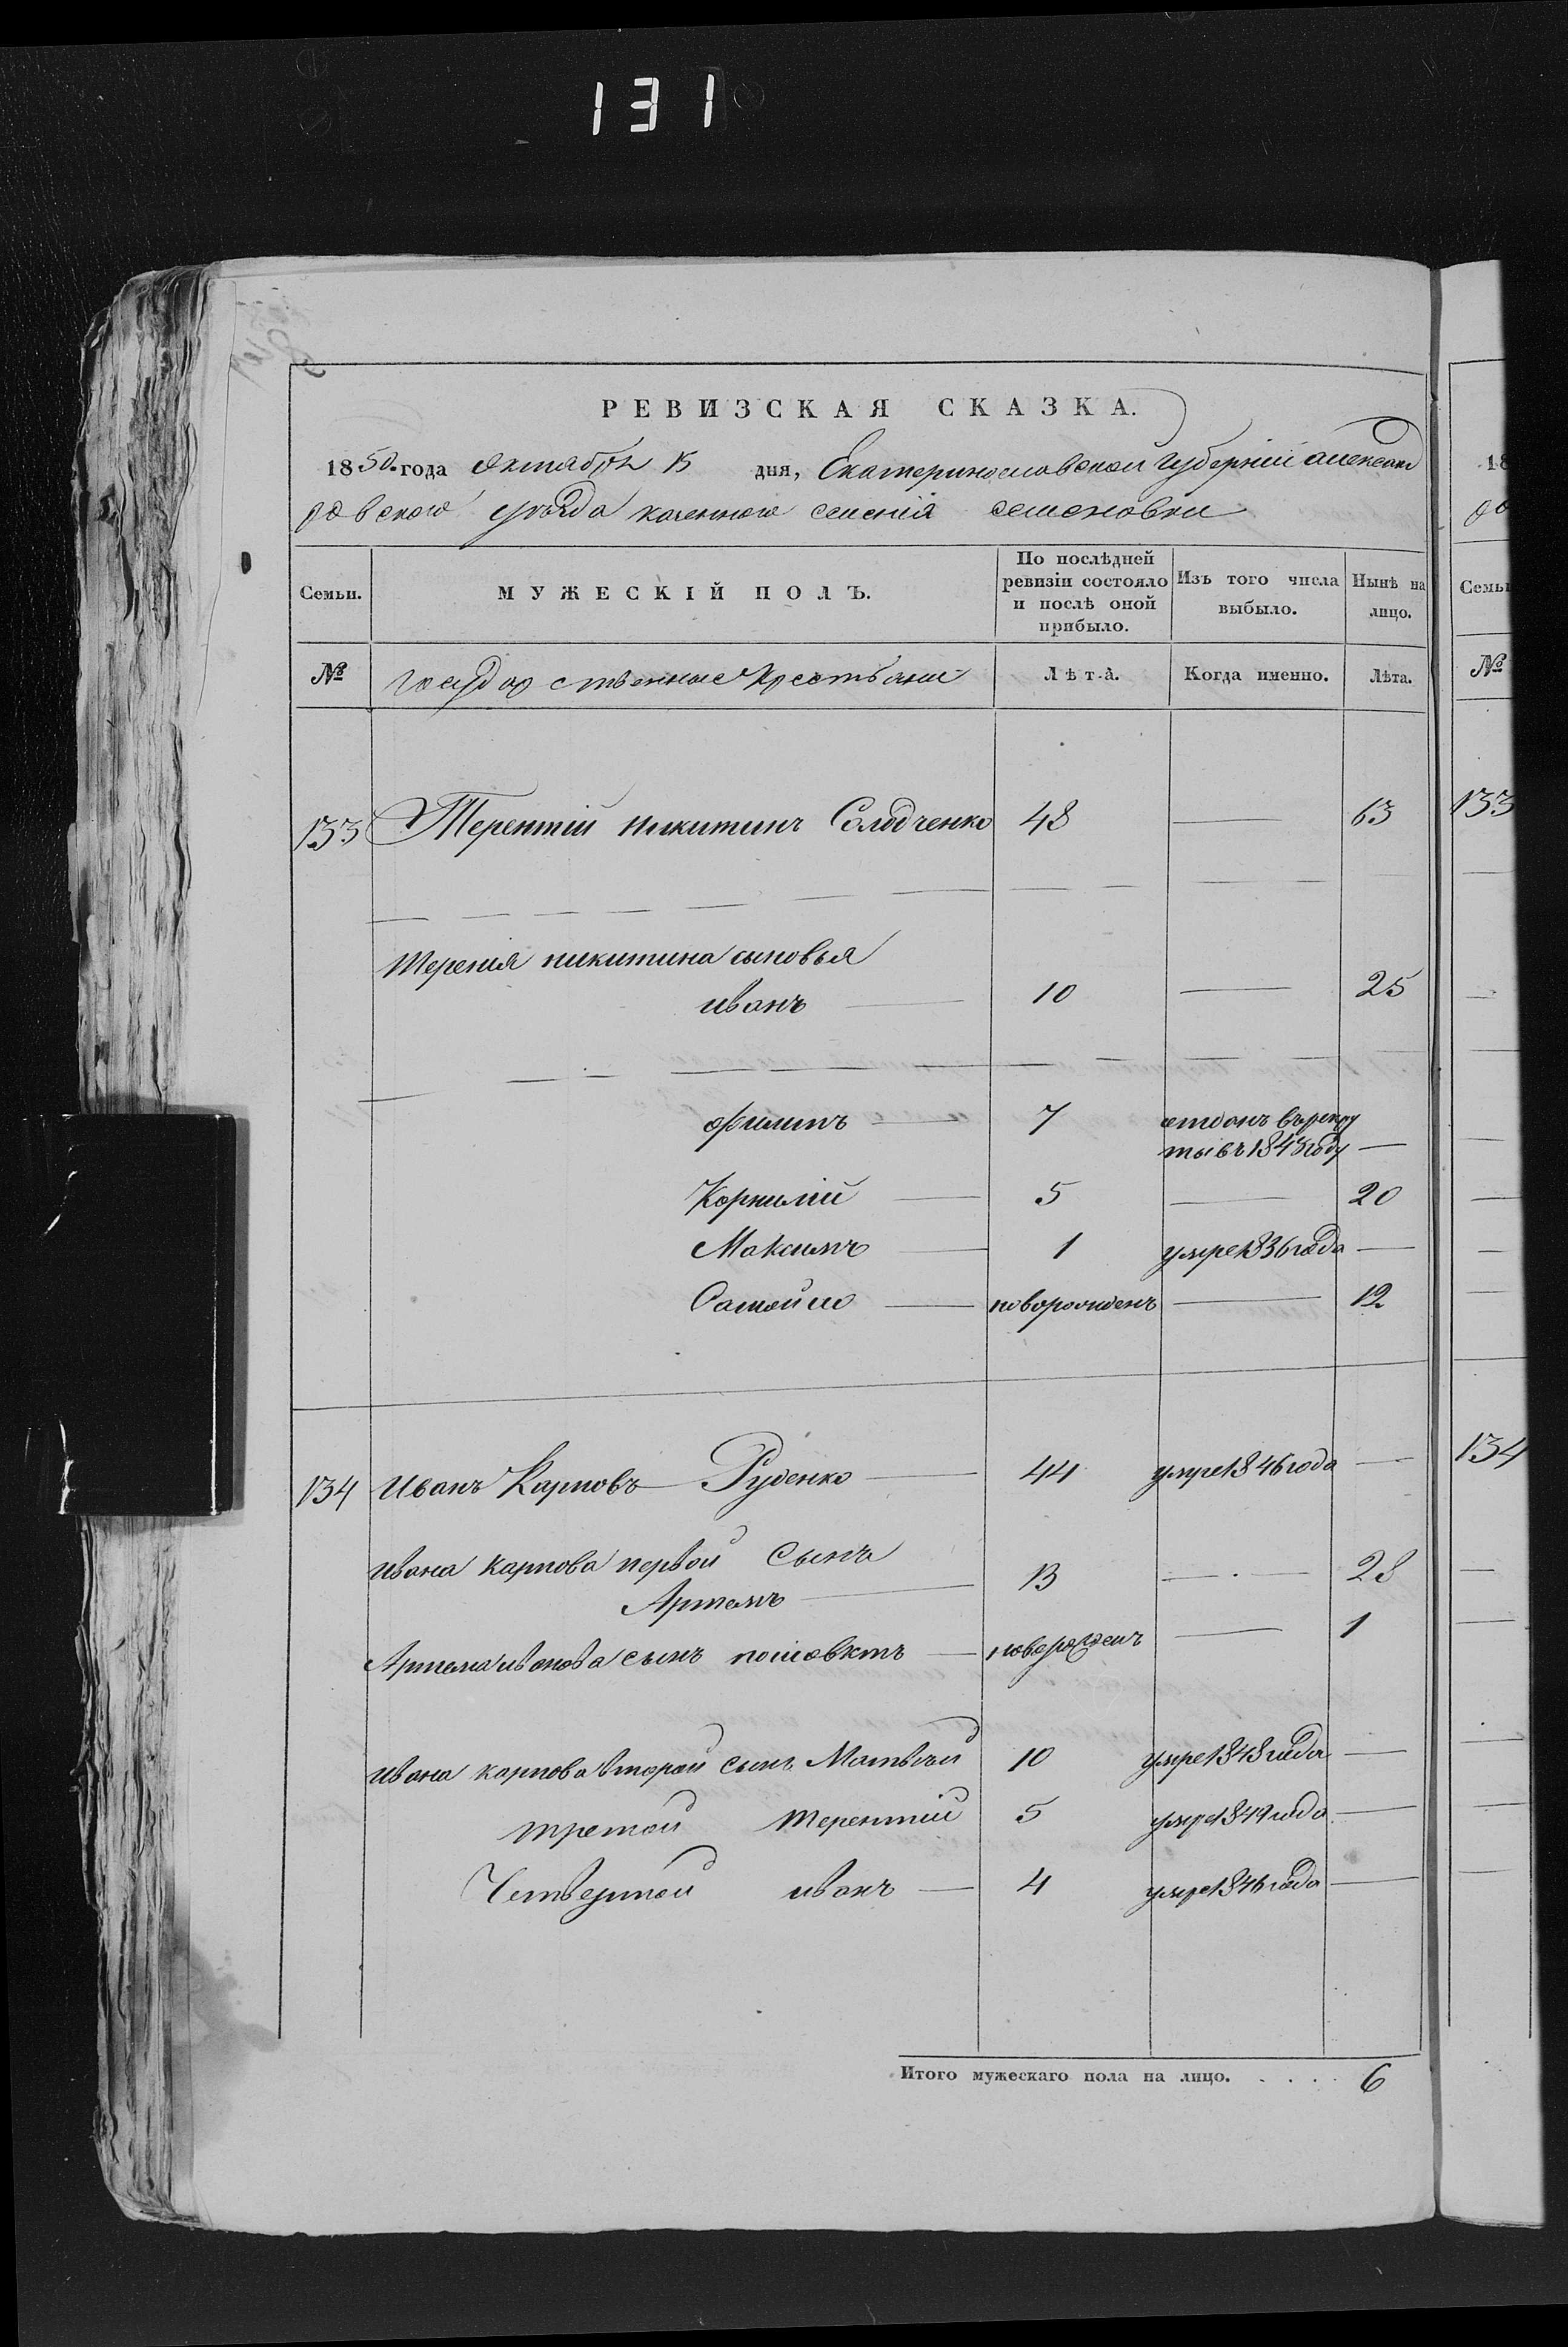 131
РЕВИЗСКАЯ СКАЗКА.
1850 года Октября 15 дня, Екатеринославской губерніи александ
ровского уѣзда казенного селенія семеновки
Семьи. МУЖЕСКІЙ ПОЛЪ. По послѣдней ревизіи состояло и послѣ оной прибыло. Изъ того числа выбыло. Нынѣ на лицо.
№ государственные крестьяне Лѣта. Когда именно. Лѣта.
133 Терентій никитинъ Солодченко 48 — 63
Терентія никитина сыновья
иванъ — 10 — 25
филипъ — 7 отданъ въ рекру
ты въ 1843 году —
Корнилій — 5 — 20
Максимъ — 1 умре 1836 года —
Самойло — новорожденъ — 12
134 Иванъ Карповъ Руденко — 44 умре 1846 года —
ивана карпова первой Сынъ
Артемъ — 13 — 28
Артема иванова сынъ — новорожденъ — 1
ивана карпова второй сынъ Матвѣй 10 умре 1848 года —
третой терентій 5 умре 1849 года —
Четвертой иванъ — 4 умре 1846 года —
Итого мужескаго пола на лицо. . . . . 6
18
ро
Семьи
№
133
134